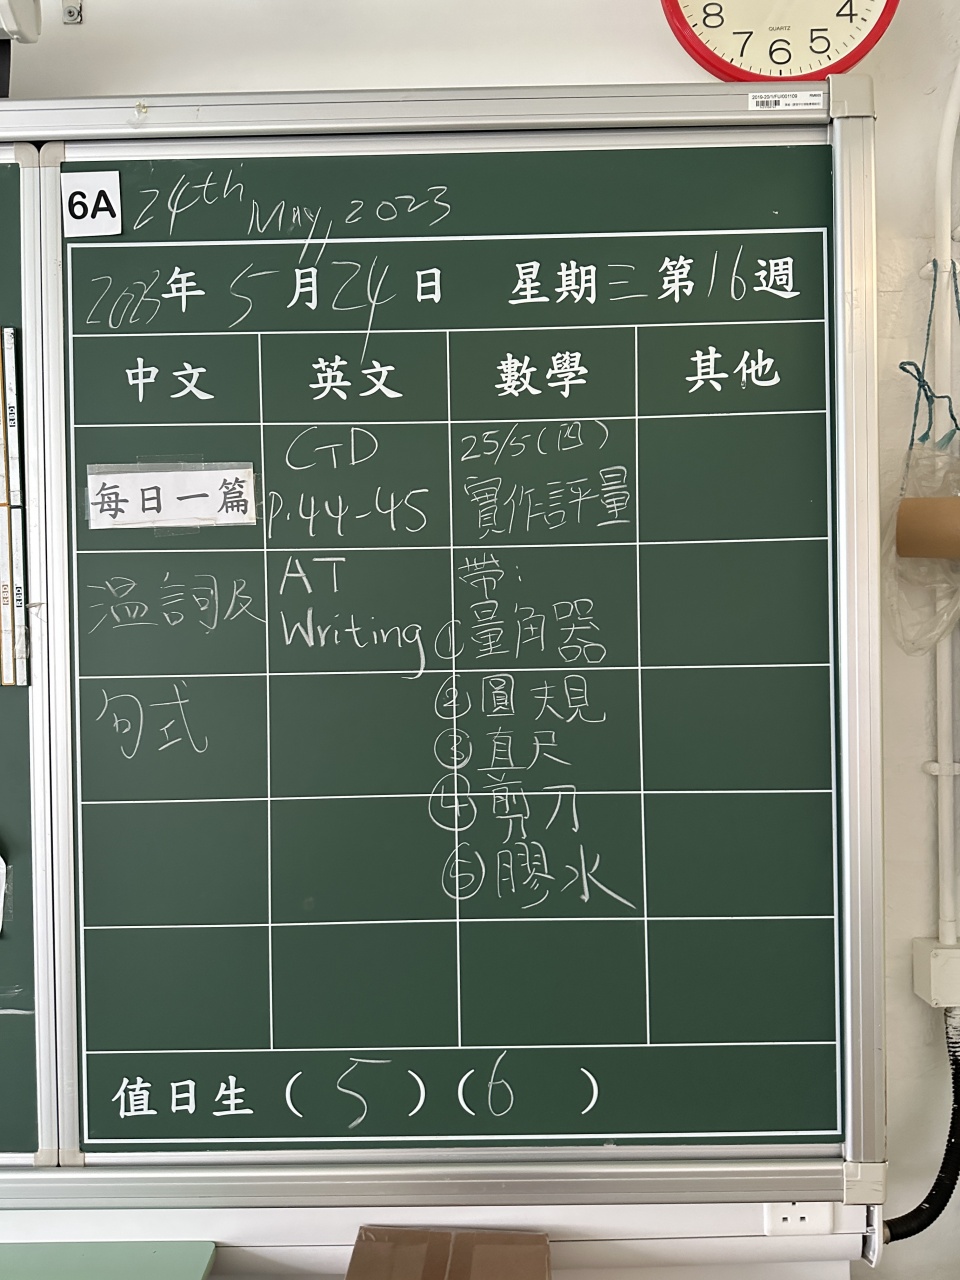 8
7
6
5
4
QUARTZ
2019-20/1/FU/001109
6A
24th May, 2023
2023年5月24日 星期三第16週
中文
英文
數學
其他
每日一篇
溫詞及
句式
GD
P.44-45
AT
Writing
25/5(四)
實作評量
帶:
①量角器
②圓規
③直尺
④剪刀
⑤膠水
值日生(5)(6)